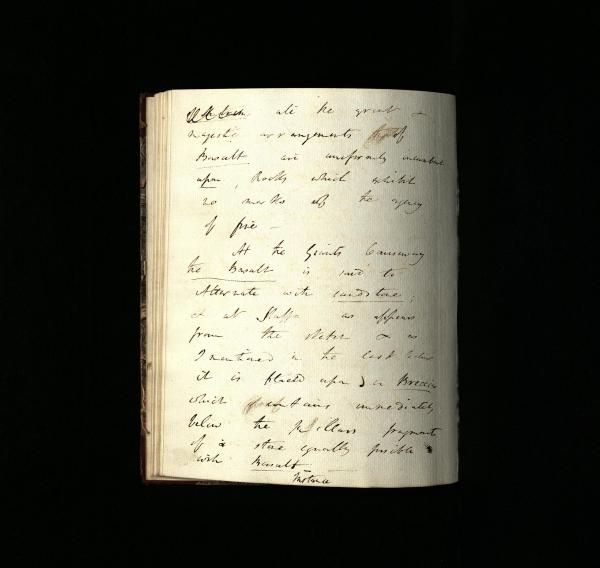 all the great &
majestic arrangements of
Basalt are uniformly incumbent
upon, Rocks which exhibit
no marks of the agency
of fire —
At the Giants Causeway
the Basalt is said to
Alternate with sandstone;
& at Staffa as appears
from the sketch & as
I mentioned in the last lecture
it is placed upon a Breccia
which contains immediately
below the Pillars fragments
of a stone equally fusible
with Basalt —
Instance